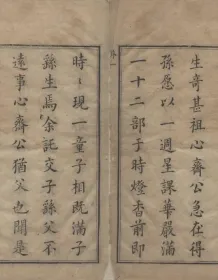 生奇甚祖心齊公急在得
孫愿以一週星課華嚴滿
一十二部于時燈香前即
序一
時〻現一童子相既滿子
孫生焉余託交子孫父不
遠事心齊公猶父也聞是